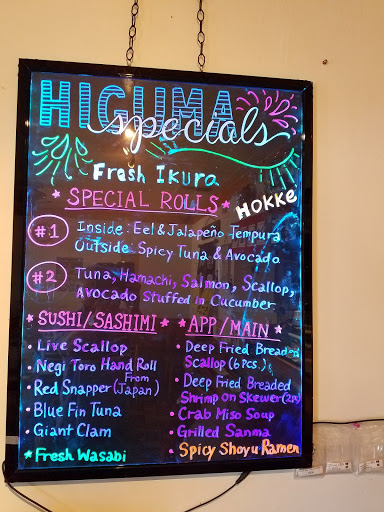 HIGUMA
specials
Fresh Ikura
★ SPECIAL ROLLS ★
HOKKE
#1 Inside: Eel & Jalapeño Tempura
Outside: Spicy Tuna & Avocado
#2 Tuna, Hamachi, Salmon, Scallop,
Avocado Stuffed in Cucumber
★ SUSHI/SASHIMI ★
• Live Scallop
• Negi Toro Hand Roll
• Red Snapper (From Japan)
• Blue Fin Tuna
• Giant Clam
★ Fresh Wasabi
★ APP/MAIN ★
• Deep Fried Breaded
Scallop (6 Pcs.)
• Deep Fried Breaded
Shrimp on Skewer (2pc)
• Crab Miso Soup
• Grilled Sanma
• Spicy Shoyu Ramen